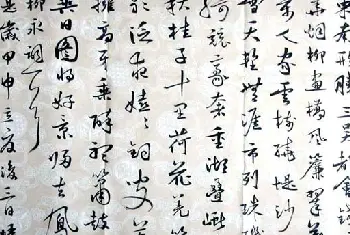 東南形勝三吳都會錢
華烟柳畫橋風簾翠
萬人家雲樹繞堤沙
雪天塹無涯市列珠璣
綺競豪奢重湖疊巘
秋桂子十里荷花羌
歌泛夜嬉嬉釣叟
擁高牙乘醉聽簫鼓
異日圖將好景歸去鳳
柳永詞
歲甲申立夏後三日